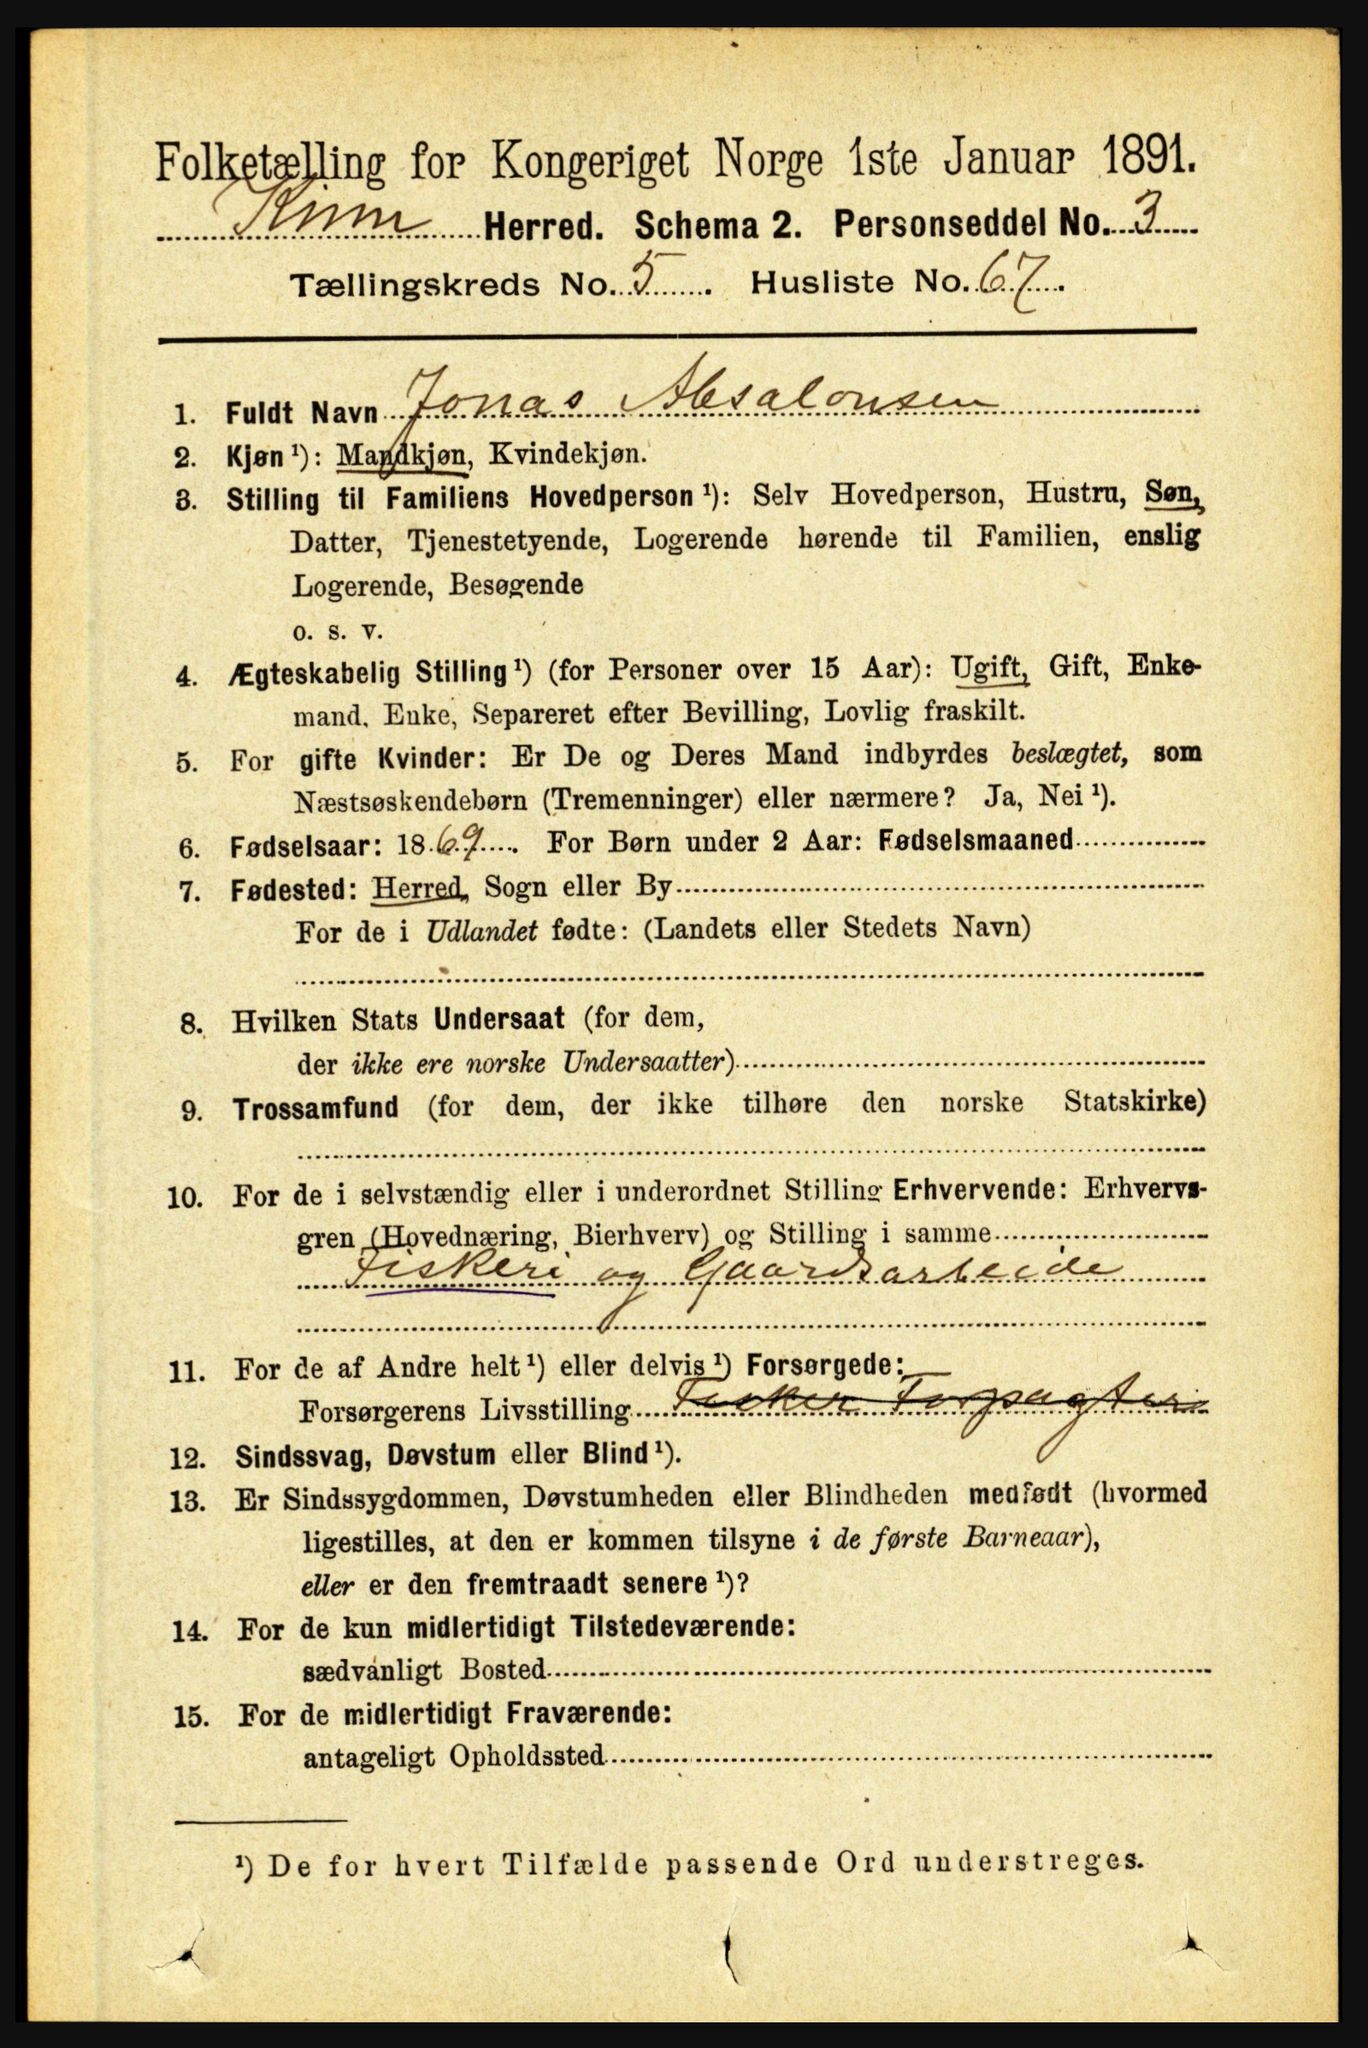 Folketælling for Kongeriget Norge 1ste Januar 1891.
Kinn Herred. Schema 2. Personseddel No. 3
Tællingskreds No. 5. Husliste No. 67.
1. Fuldt Navn Jonas Absalonsen
2. Kjøn ¹): Mandkjøn, Kvindekjøn.
3. Stilling til Familiens Hovedperson ¹): Selv Hovedperson, Hustru, Søn,
Datter, Tjenestetyende, Logerende hørende til Familien, enslig
Logerende, Besøgende
o. s. v.
4. Ægteskabelig Stilling ¹) (for Personer over 15 Aar): Ugift, Gift, Enke-
mand, Enke, Separeret efter Bevilling, Lovlig fraskilt.
5. For gifte Kvinder: Er De og Deres Mand indbyrdes beslægtet, som
Næstsøskendebørn (Tremenninger) eller nærmere? Ja, Nei ¹).
6. Fødselsaar: 1869. For Børn under 2 Aar: Fødselsmaaned
7. Fødested: Herred, Sogn eller By
For de i Udlandet fødte: (Landets eller Stedets Navn)
8. Hvilken Stats Undersaat (for dem,
der ikke ere norske Undersaatter)
9. Trossamfund (for dem, der ikke tilhøre den norske Statskirke)
10. For de i selvstændig eller i underordnet Stilling Erhvervende: Erhvervs-
gren (Hovednæring, Bierhverv) og Stilling i samme
Fiskeri og Gaardsarbeide
11. For de af Andre helt ¹) eller delvis ¹) Forsørgede:
Forsørgerens Livsstilling Fisker Forpagter
12. Sindssvag, Døvstum eller Blind ¹).
13. Er Sindssygdommen, Døvstumheden eller Blindheden medfødt (hvormed
ligestilles, at den er kommen tilsyne i de første Barneaar),
eller er den fremtraadt senere ¹)?
14. For de kun midlertidigt Tilstedeværende:
sædvanligt Bosted
15. For de midlertidigt Fraværende:
antageligt Opholdssted
¹) De for hvert Tilfælde passende Ord understreges.